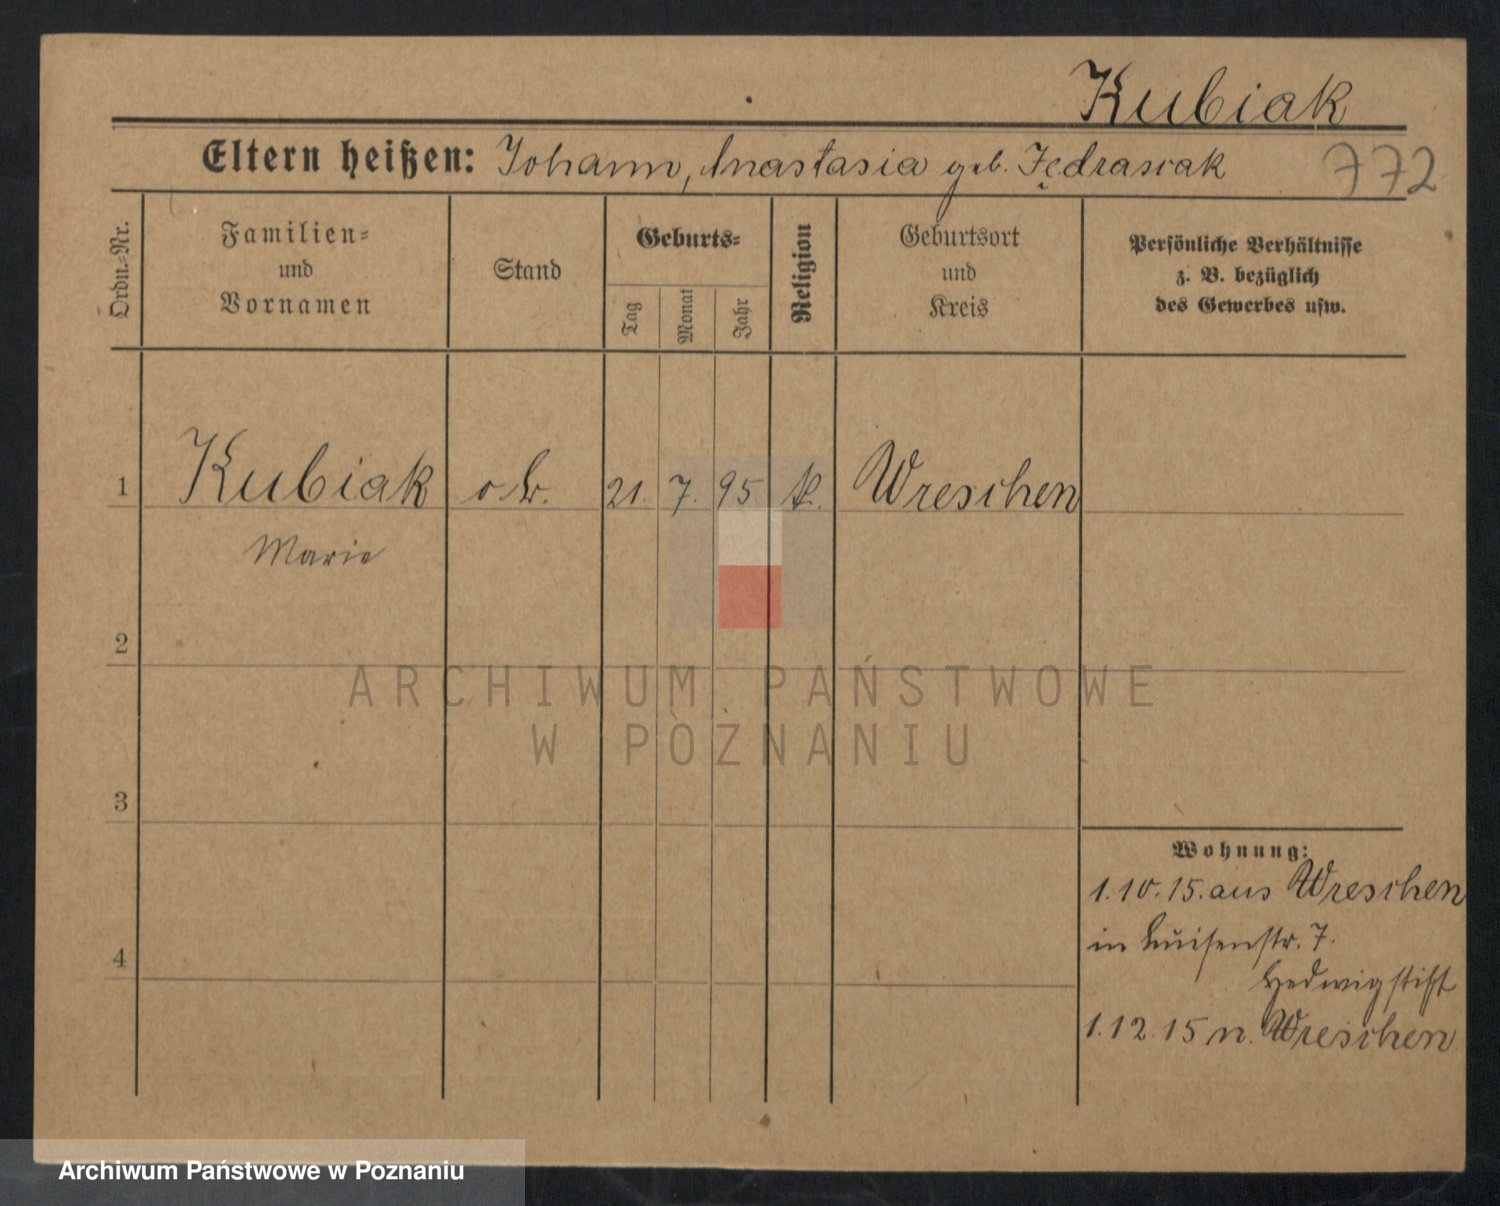 Kubiak
Eltern heißen: Johann, Anastasia geb. Jędrasiak
772
Ordn.-Nr.
Familien-
und
Vornamen
Stand
Geburts-
Tag
Monat
Jahr
Religion
Geburtsort
und
Kreis
Persönliche Verhältnisse
z. B. bezüglich
des Gewerbes usw.
1 Kubiak 21. 7. 95 Wreschen
Marie
2
3
4
Wohnung:
1.10.15. aus Wreschen
in Luisenstr. 7.
Hedwigstift
1.12.15 n. Wreschen
ARCHIWUM PAŃSTWOWE
W POZNANIU
Archiwum Państwowe w Poznaniu